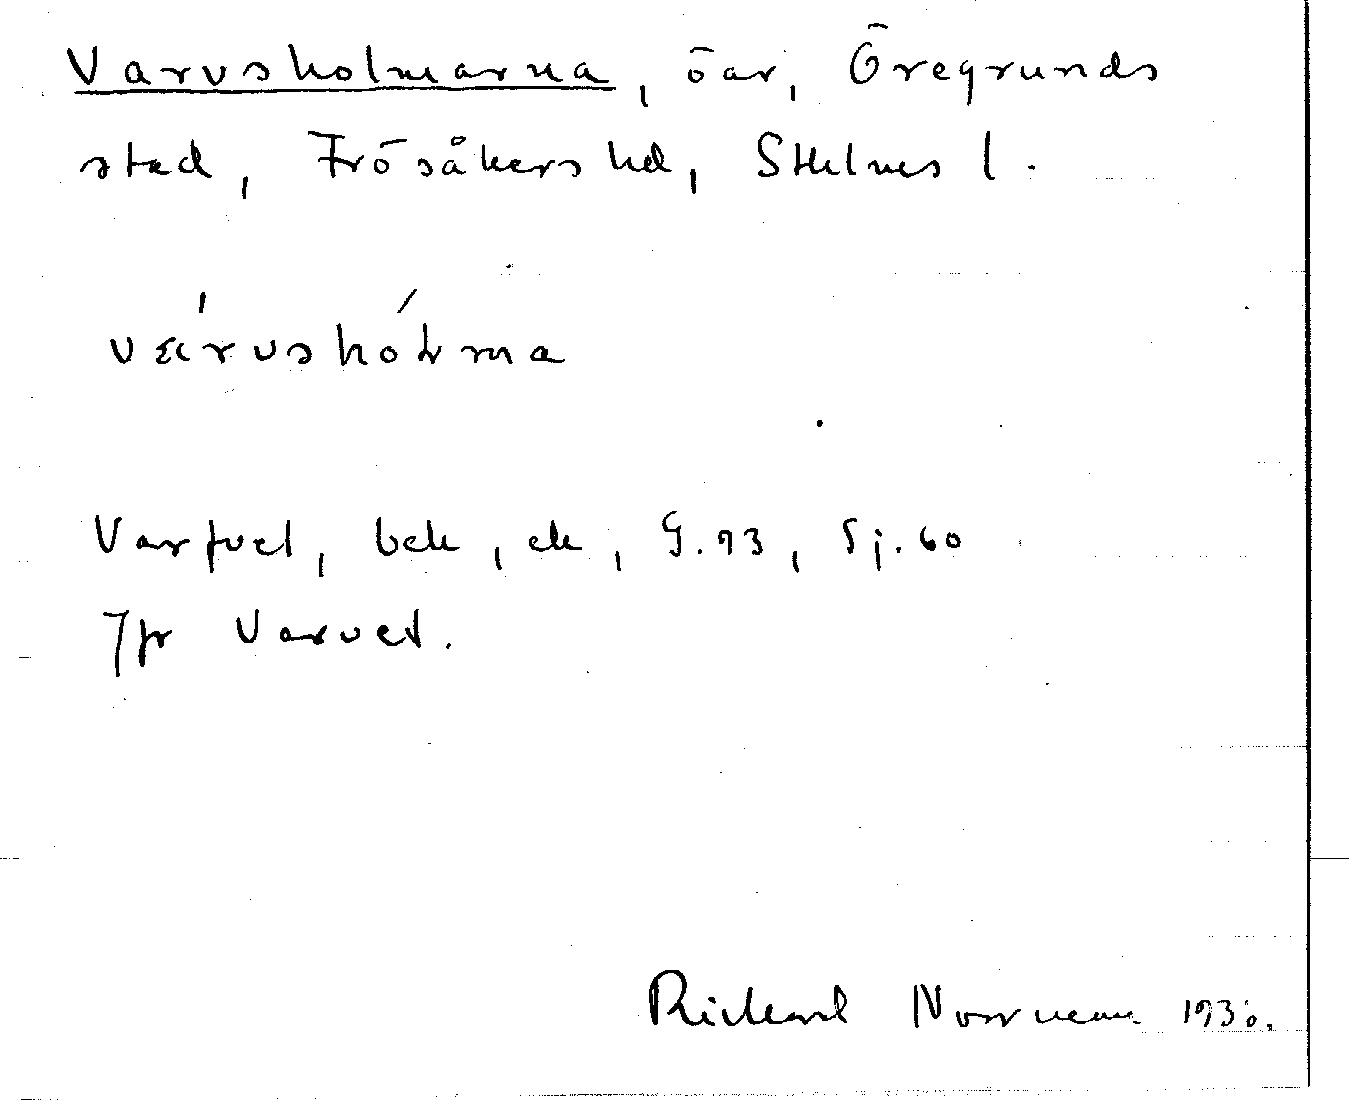 Varvsholmarna, öar, Öregrunds
stad, Frösåkers hd, Sthlms l.
várvshólma
Varfvet, bek, ek, G.93, Sj.60
Jfr Varvet.
Rickard Norrman 1930.